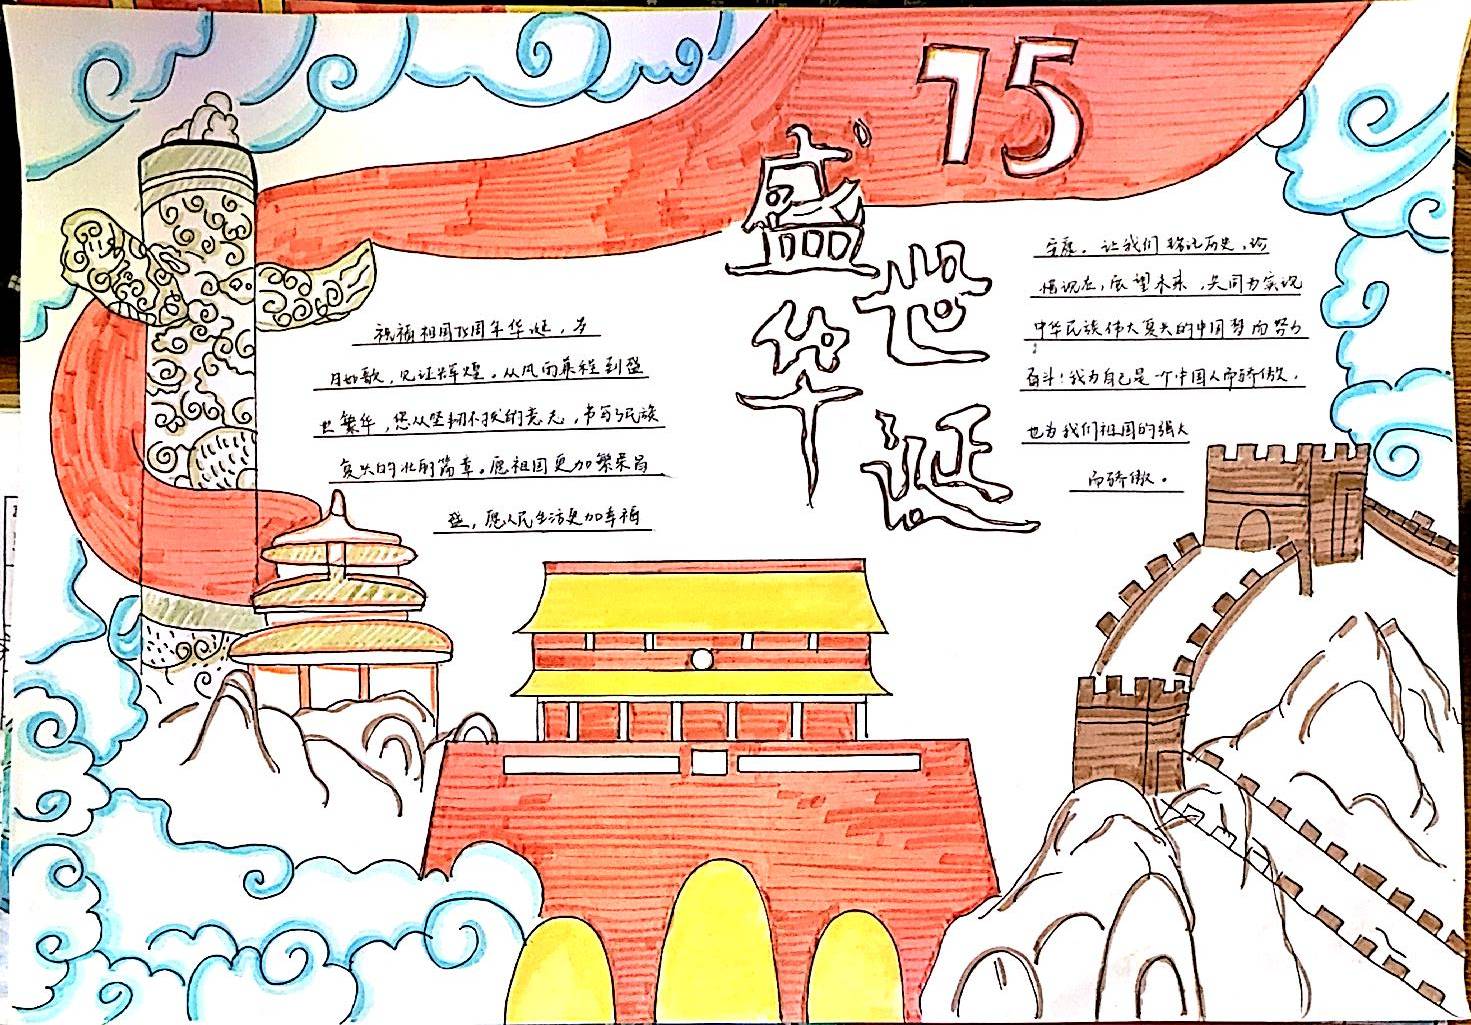 75
盛世
华诞
祝福祖国75周年华诞，岁
月如歌，见证辉煌。从风雨兼程到盛
世繁华，您从坚韧不拔的意志，书写了民族
复兴的壮丽篇章。愿祖国更加繁荣昌
盛，愿人民生活更加幸福
安康。让我们铭记历史，珍
惜现在，展望未来，共同为实现
中华民族伟大复兴的中国梦而努力
奋斗！我为自己是一个中国人而骄傲，
也为我们祖国的强大
而骄傲。